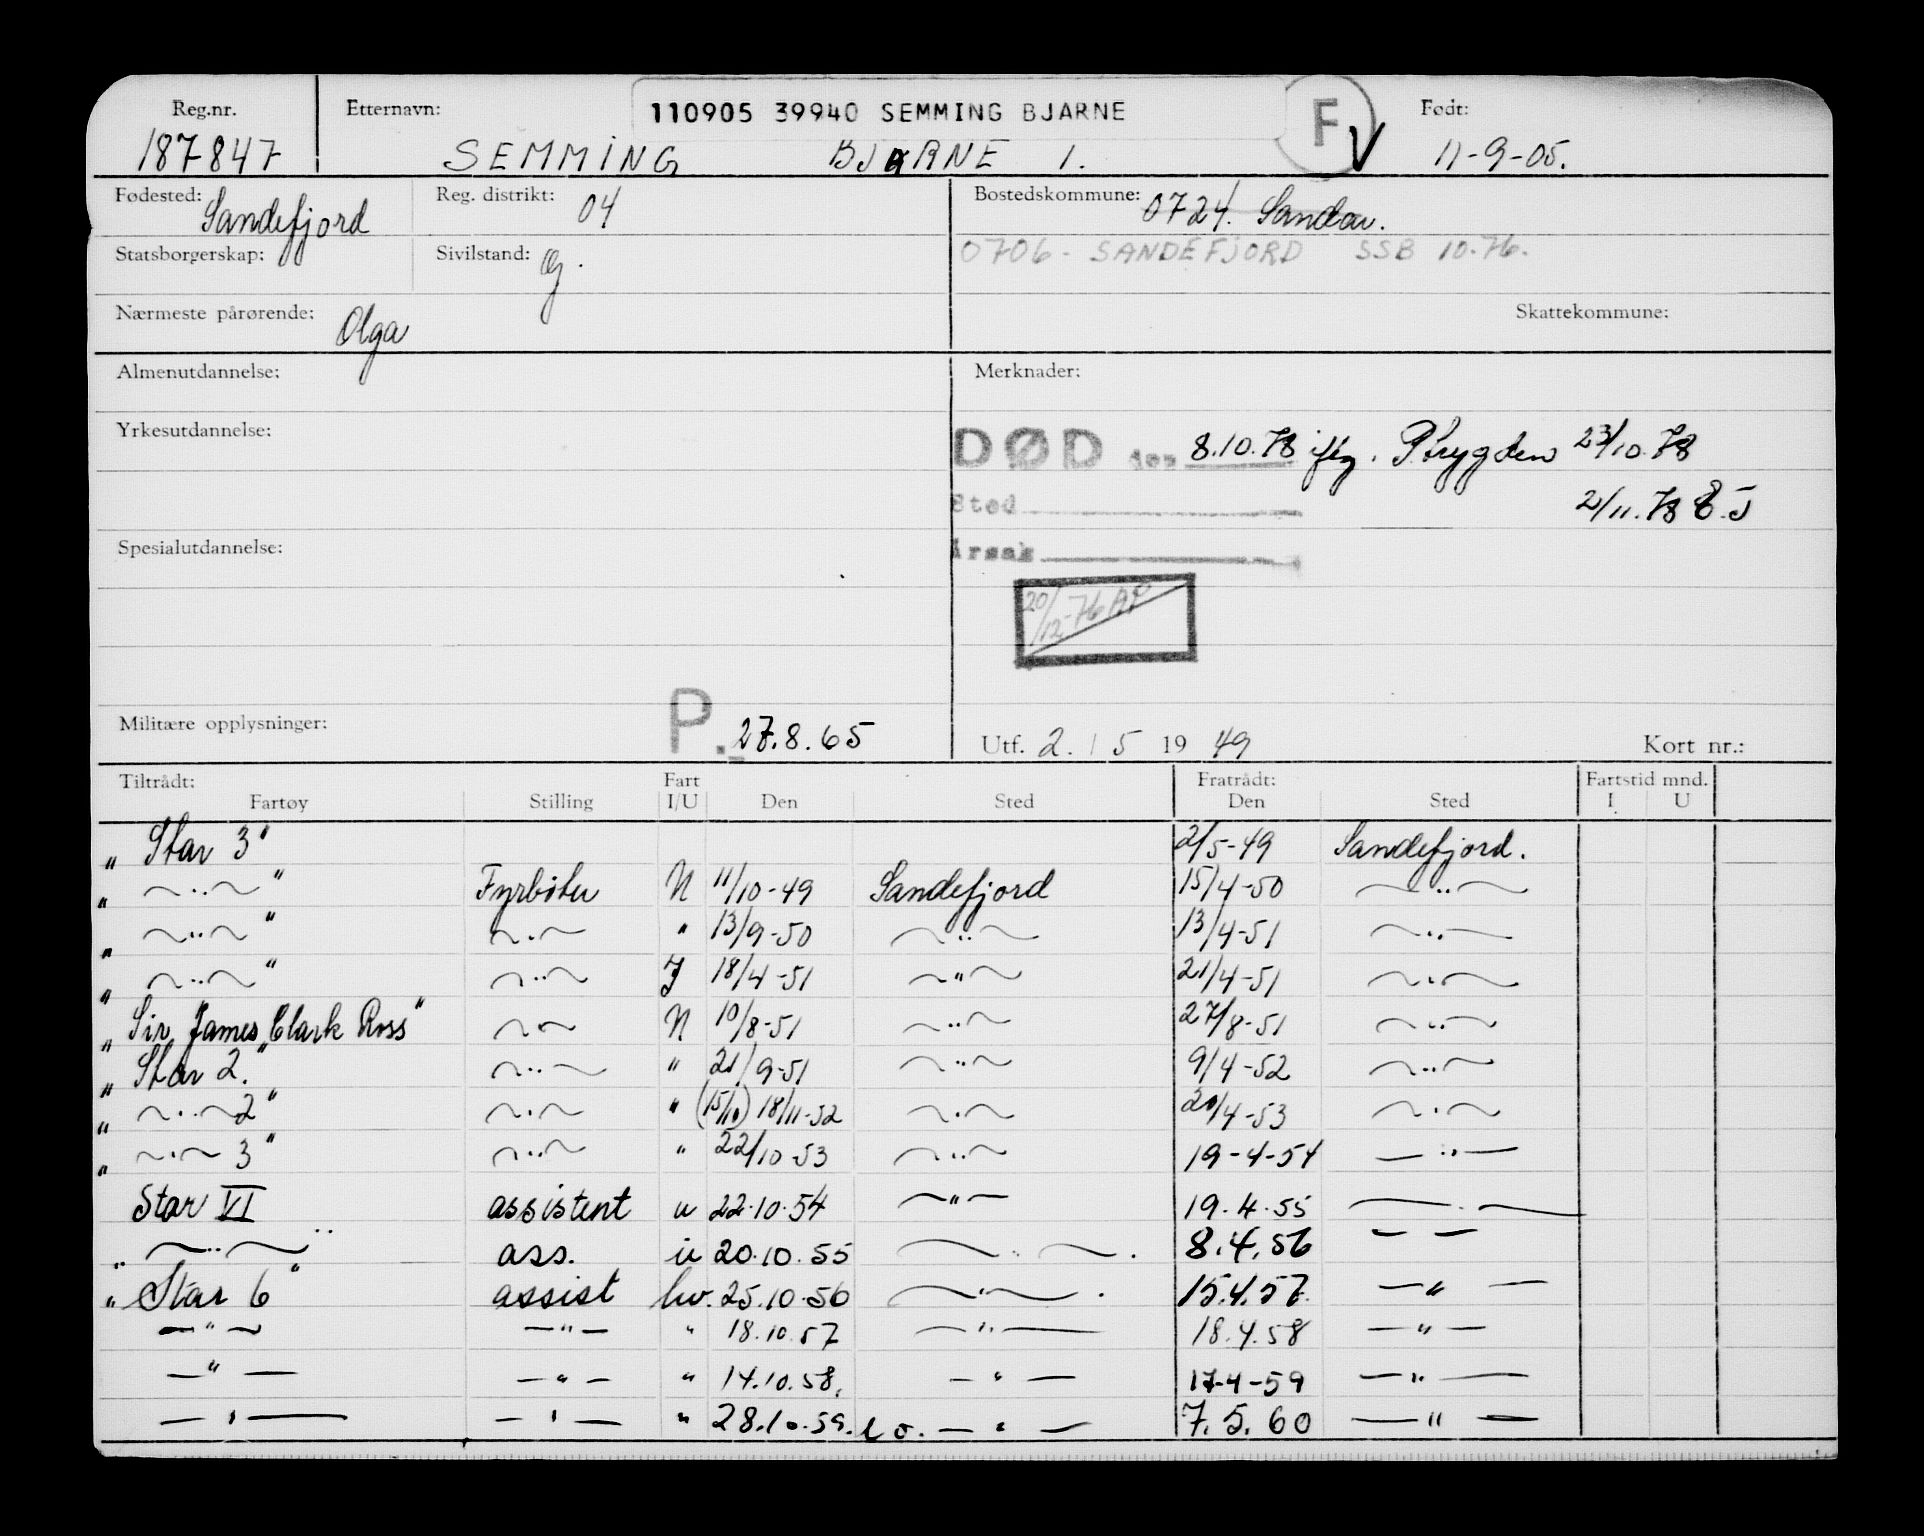 Reg.nr. Etternavn: 110905 39940 SEMMING BJARNE F Født:
187847 SEMMING BJARNE I. V 11-9-05.
Fødested: Sandefjord Reg. distrikt: 04 Bostedskommune: 0724. Sandar.
Statsborgerskap: Sivilstand: g. 0706 - SANDEFJORD SSB 10.76.
Nærmeste pårørende: Olga Skattekommune:
Almenutdannelse: Merknader:
Yrkesutdannelse: DØD den 8.10.78 iflg. Ptrygden 23/10.78
Sted 2/11.78 E.J
Spesialutdannelse: Årsak
20/12-76
Militære opplysninger: P. 27.8.65 Utf. 2. / 5 19 49 Kort nr.:
Tiltrådt: Fart Fratrådt: Fartstid mnd.
Fartøy Stilling I/U Den Sted Den Sted I U
„ Star 3" 2/5-49 Sandefjord.
„ ~..~ " Fyrbøter N 11/10-49 Sandefjord 15/4-50 ~..~
„ ~..~ " ~.~ " 13/9-50 ~..~ 13/4-51 ~..~
„ ~..~ " ~..~ J 18/4-51 ~"~ 21/4-51 ~.~
„ Sir James Clark Ross" ~.~ N 10/8-51 ~..~ 27/8-51 ~..~
„ Star 2." ~..~ " 21/9-51 ~..~ 9/4-52 ~..~
„ ~..~ 2" ~.~ " (15/10) 18/11-52 ~.~ 20/4-53 ~.~
„ ~.~ 3" ~..~ " 22/10-53 ~..~ 19-4-54 — .. —
Star VI assistent u 22.10.54 ~"~ 19.4.55 ~.~
„ ~..~ " ass. u 20.10.55 ~..~. 8.4.56 — —
„ Star 6" assist hv. 25.10.56 ~"~. 15.4.57. —"—
—"— —"— " 18.10.57 —"— 18.4.58 —"—
—"— —"— " 14.10.58. —"— 17-4-59 —"—
—"— —"— " 28.10.59. —"— 7.5.60 —"—